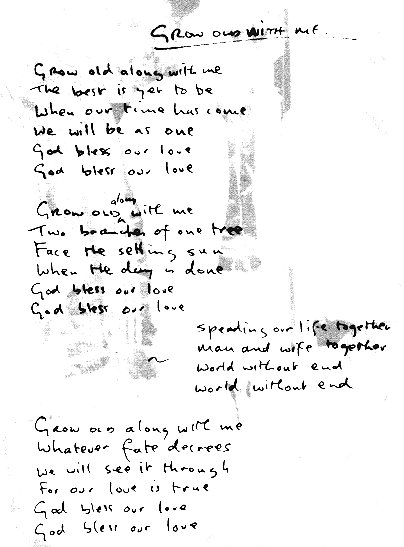 GROW OLD WITH ME
Grow old along with me
The best is yet to be
When our time has come
We will be as one
God bless our love
God bless our love
Grow old along with me
Two branches of one tree
Face the setting sun
When the day is done
God bless our love
God bless our love
spending our life together
man and wife together
world without end
world without end
Grow old along with me
Whatever fate decrees
We will see it through
For our love is true
God bless our love
God bless our love